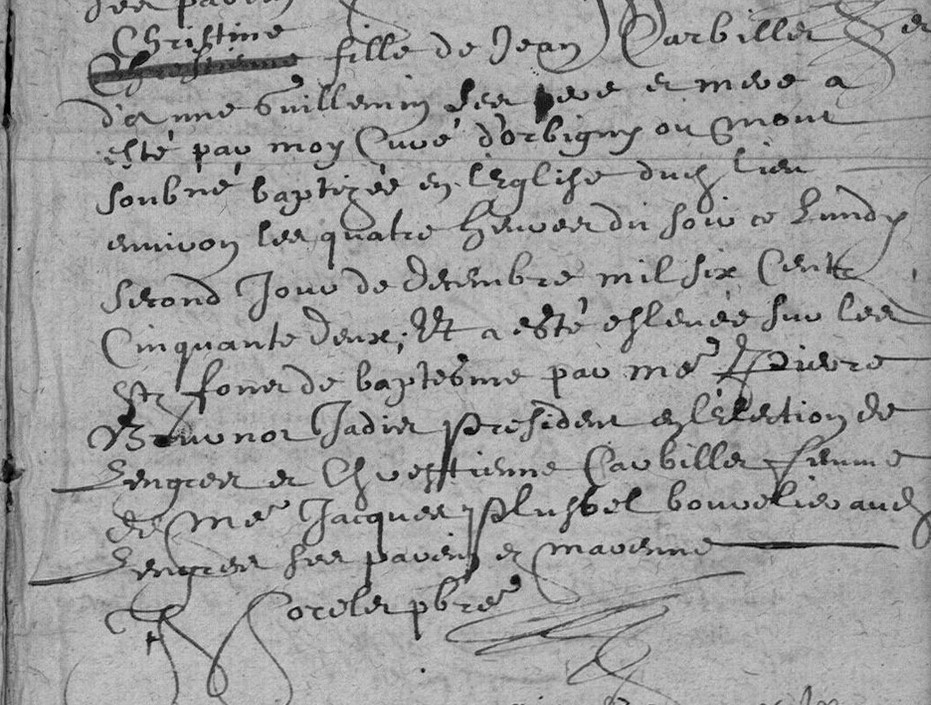 Christine
Chrestienne fille de Jean Carbillet et
d'anne Guillemin ses pere et mere a
esté par moy Curé d'orbigny ou mont
soubné baptizée en l'Eglise dud lieu
environ les quatre heures du soir ce Lundy
second Jour de decembre mil six Cents
Cinquante deux; Et a esté eslevée sur les
Stz fons de baptesme par me Pierre
Jadis president en l'Election de
Lengres et Chrestienne Carbillet femme
de Me Jacques bourelier aud
Lengres ses parein et marenne
pbre